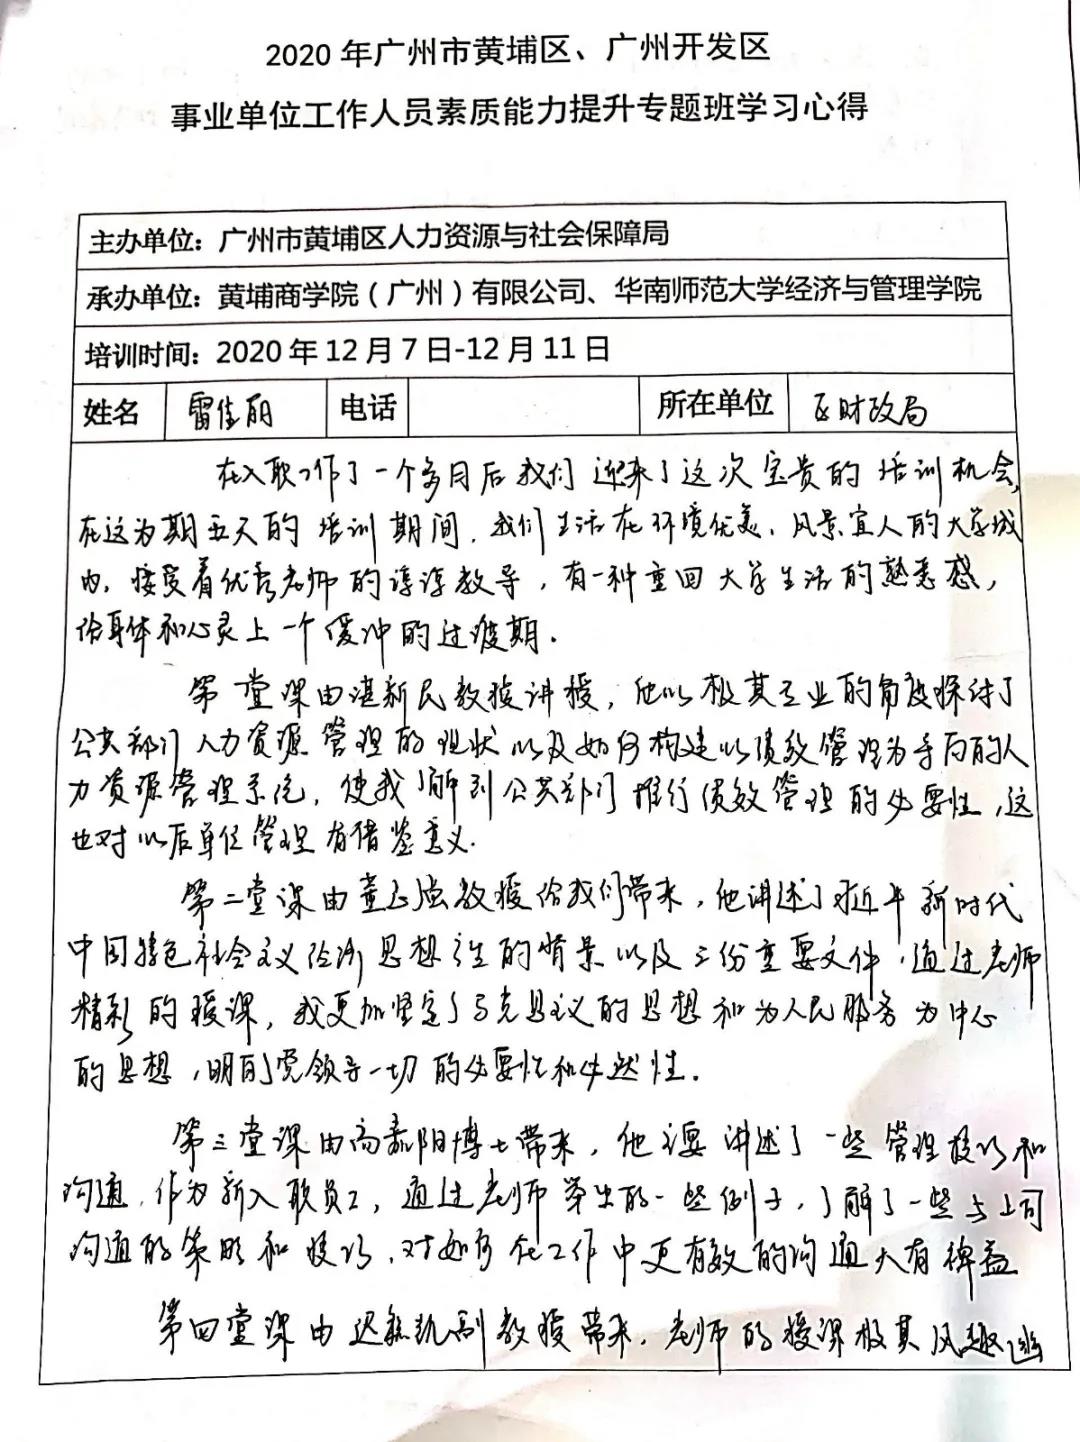 2020年广州市黄埔区、广州开发区
事业单位工作人员素质能力提升专题班学习心得
主办单位：广州市黄埔区人力资源与社会保障局
承办单位：黄埔商学院（广州）有限公司、华南师范大学经济与管理学院
培训时间：2020年12月7日-12月11日
姓名 雷佳丽 电话 所在单位 区财政局
在入职工作了一个多月后我们迎来了这次宝贵的培训机会，
在这为期五天的培训期间，我们生活在环境优美、风景宜人的大学城
内，接受着优秀老师的谆谆教导，有一种重回大学生活的熟悉感，
给身体和心灵上一个缓冲的过渡期．
第一堂课由谌新民教授讲授，他以极其专业的角度探讨了
公共部门人力资源管理的现状以及如何构建以绩效管理为手段的人
力资源管理系统，使我了解到公共部门推行绩效管理的必要性，这
也对以后单位管理有借鉴意义．
第二堂课由董玉强教授给我们带来，他讲述了近年新时代
中国特色社会主义经济思想产生的背景以及三份重要文件，通过老师
精彩的授课，我更加坚定了马克思主义的思想和为人民服务为中心
的思想，明白党领导一切的必要性和必然性．
第三堂课由高嘉阳博士带来，他主要讲述了一些管理技巧和
沟通．作为新入职员工，通过老师举出的一些例子，了解了一些与上司
沟通的策略和技巧，对如何在工作中更有效的沟通大有裨益
第四堂课由迟副教授带来，老师的授课极其风趣幽